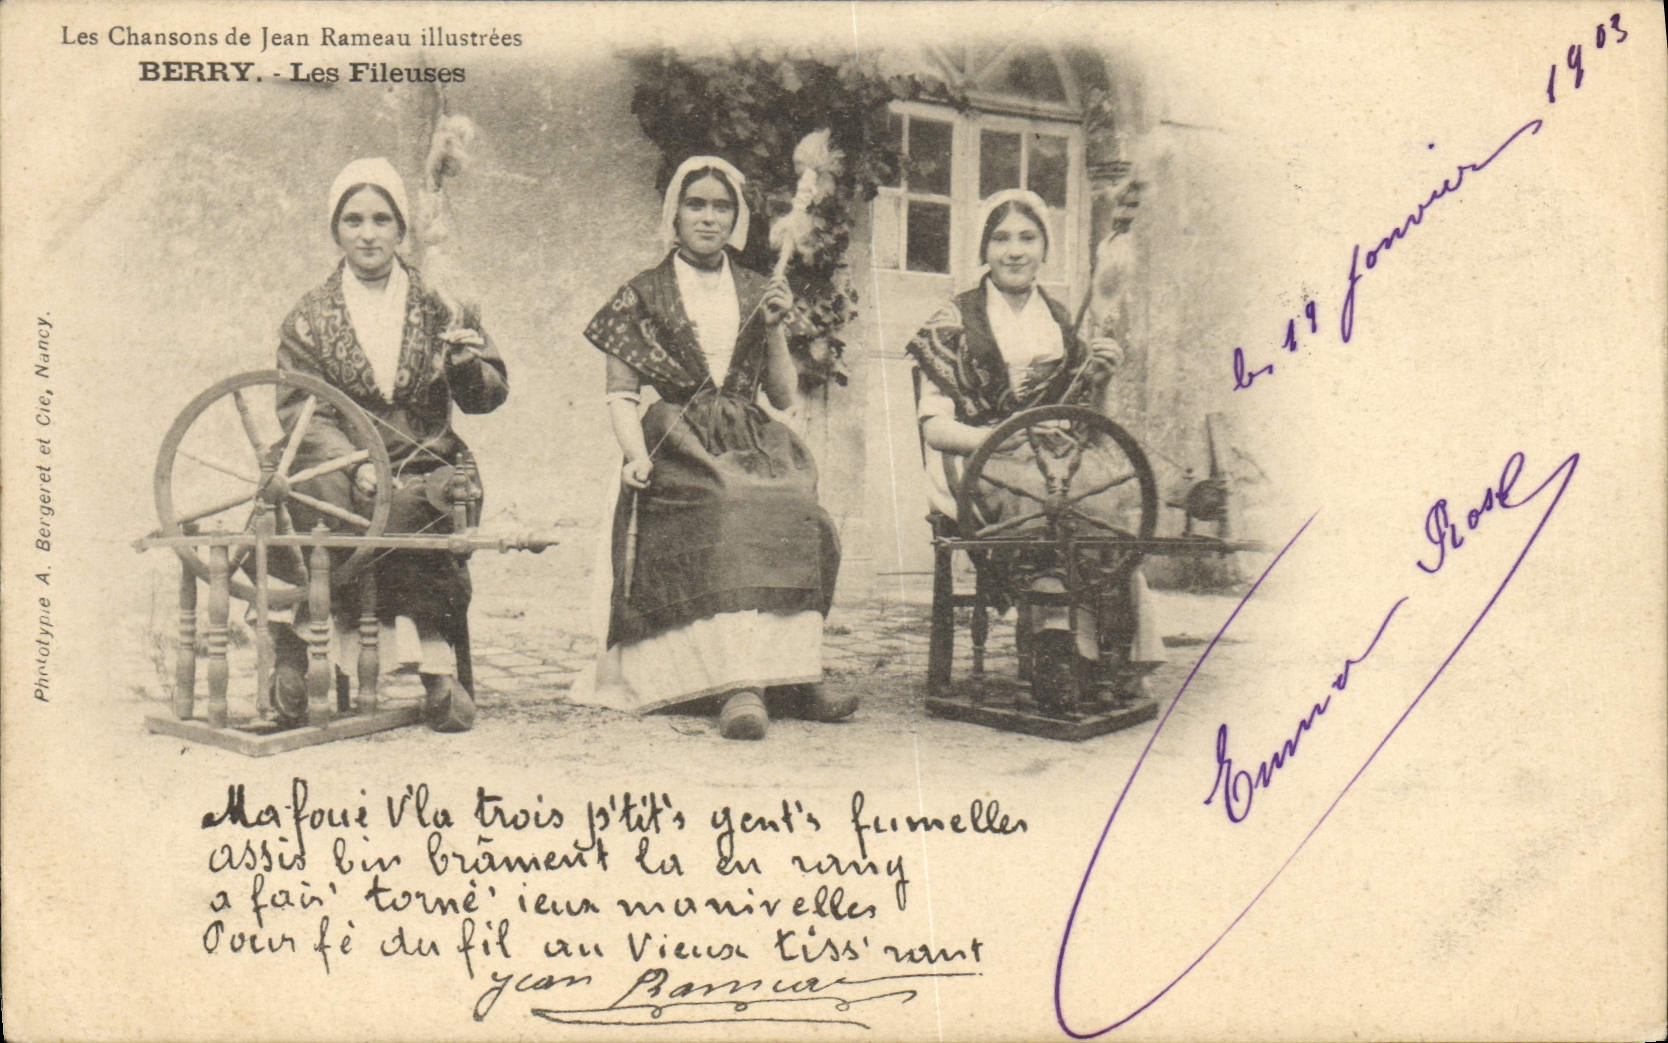 Les Chansons de Jean Rameau illustrées
BERRY. - Les Fileuses
Phototypie A. Bergeret et Cie, Nancy.
le 19 janvier 1903
Emma Rose
Ma foué V'la trois p'tit's gent's fumelles
assis bin brâment la en rang
a fair' torné' ieux manivelles
Pour fé du fil au vieux tiss'rant
Jean Rameau